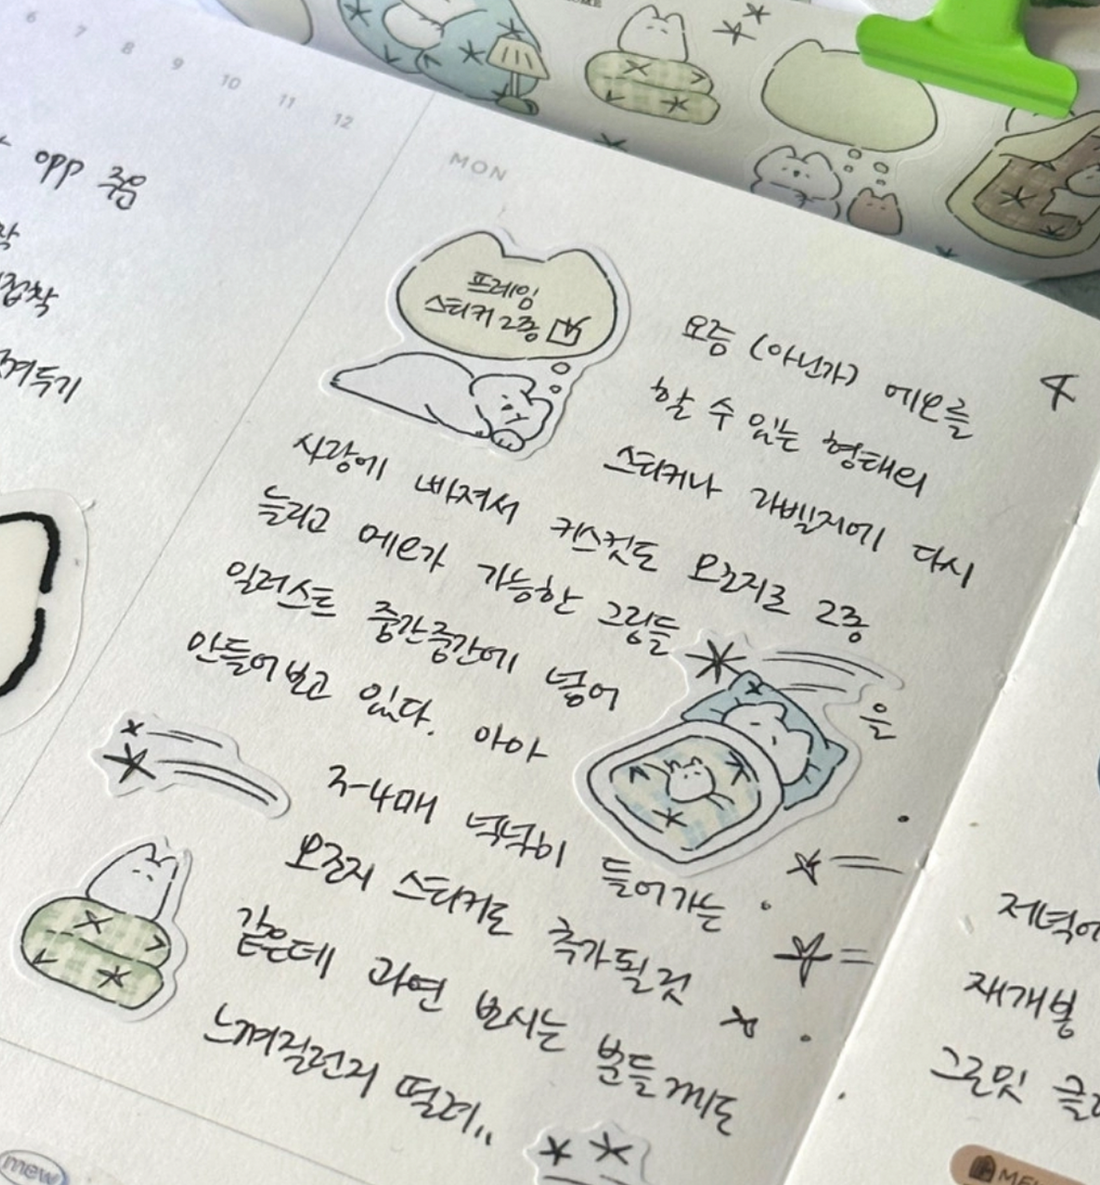 6 7 8 9 10 11 12
MON
opp 주운
착
접착
겨두기
프레임
스티커 2종
요즘 (아닌가) 메모를
할 수 있는 형태의
스티커나 라벨지에 다시
사랑에 빠져서 키스컷도 모조지로 2종
늘리고 메모가 가능한 그림들을
일러스트 중간중간에 넣어
만들어보고 있다. 아마
3-4매 넉넉히 들어가는
모조지 스티커도 추가될 것
같은데 과연 보시는 분들께도
느껴질런지 떨려..
저녁에
재개봉
그린밋
mew